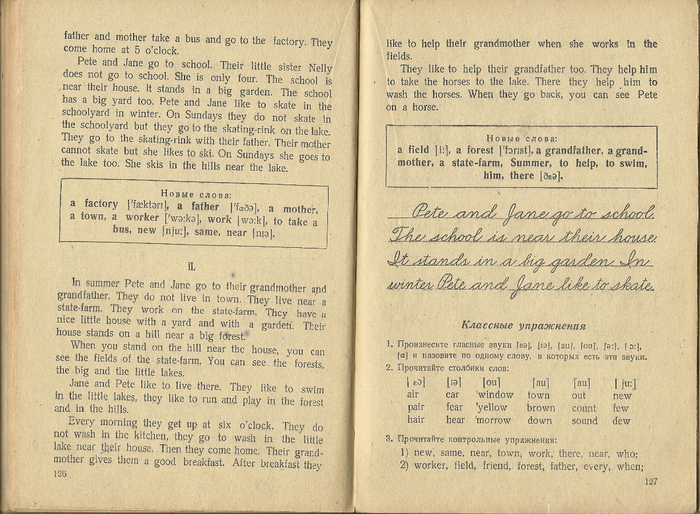 father and mother take a bus and go to the factory. They
come home at 5 o'clock.
Pete and Jane go to school. Their little sister Nelly
does not go to school. She is only four. The school is
near their house. It stands in a big garden. The school
has a big yard too. Pete and Jane like to skate in the
schoolyard in winter. On Sundays they do not skate in
the schoolyard but they go to the skating-rink on the lake.
They go to the skating-rink with their father. Their mother
cannot skate but she likes to ski. On Sundays she goes to
the lake too. She skis in the hills near the lake.
Новые слова:
a factory ['fæktərɪ], a father ['fɑðə], a mother,
a town, a worker ['wə:kə], work [wə:k], to take a
bus, new [nju:], same, near [nɪə].
II.
In summer Pete and Jane go to their grandmother and
grandfather. They do not live in town. They live near a
state-farm. They work on the state-farm. They have a
nice little house with a yard and with a garden. Their
house stands on a hill near a big forest.
When you stand on the hill near the house, you can
see the fields of the state-farm. You can see the forests,
the big and the little lakes.
Jane and Pete like to live there. They like to swim
in the little lakes, they like to run and play in the forest
and in the hills.
Every morning they get up at six o'clock. They do
not wash in the kitchen, they go to wash in the little
lake near their house. Then they come home. Their grand-
mother gives them a good breakfast. After breakfast they
126
like to help their grandmother when she works in the
fields.
They like to help their grandfather too. They help him
to take the horses to the lake. There they help him to
wash the horses. When they go back, you can see Pete
on a horse.
Новые слова:
a field [i:], a forest ['fɔrɪst], a grandfather, a grand-
mother, a state-farm, Summer, to help, to swim,
him, there [ðɛə].
Pete and Jane go to school.
The school is near their house.
It stands in a big garden. In
winter Pete and Jane like to skate.
Классные упражнения
1. Произнесите гласные звуки [ɛə], [ɪə], [au], [ou], [ə:], [ɔ:],
[ɑ] и назовите по одному слову, в которых есть эти звуки.
2. Прочитайте столбики слов:
[ɛə] [ɪə] [ou] [au] [au] [ju:]
air ear 'window town out new
pair fear 'yellow brown count few
hair hear 'morrow down sound dew
3. Прочитайте контрольные упражнения:
1) new, same, near, town, work, there, near, who;
2) worker, field, friend, forest, father, every, when;
127